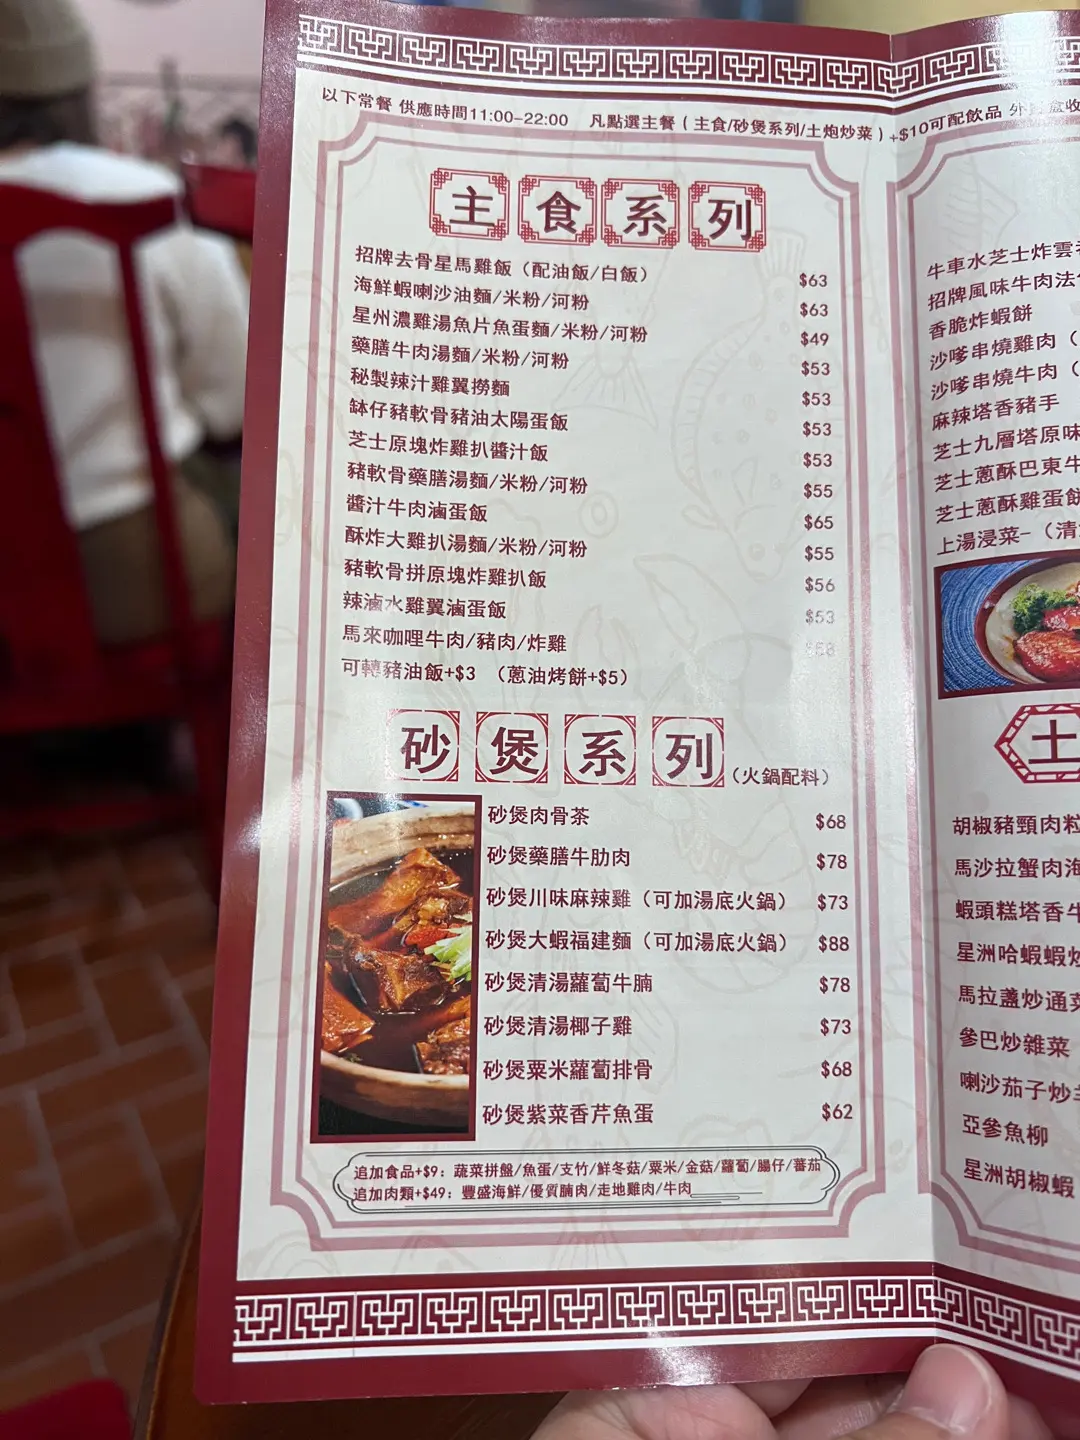 以下常餐 供應時間11:00-22:00 凡點選主餐（主食/砂煲系列/土炮炒菜）+$10可配飲品 外
主食系列
招牌去骨星馬雞飯（配油飯/白飯） $63
海鮮蝦喇沙油麵/米粉/河粉 $63
星州濃雞湯魚片魚蛋麵/米粉/河粉 $49
藥膳牛肉湯麵/米粉/河粉 $53
秘製辣汁雞翼撈麵 $53
缽仔豬軟骨豬油太陽蛋飯 $53
芝士原塊炸雞扒醬汁飯 $53
豬軟骨藥膳湯麵/米粉/河粉 $55
醬汁牛肉滷蛋飯 $65
酥炸大雞扒湯麵/米粉/河粉 $55
豬軟骨拼原塊炸雞扒飯 $56
辣滷水雞翼滷蛋飯 $53
馬來咖哩牛肉/豬肉/炸雞 $58
可轉豬油飯+$3 （蔥油烤餅+$5）
砂煲系列（火鍋配料）
砂煲肉骨茶 $68
砂煲藥膳牛肋肉 $78
砂煲川味麻辣雞（可加湯底火鍋） $73
砂煲大蝦福建麵（可加湯底火鍋） $88
砂煲清湯蘿蔔牛腩 $78
砂煲清湯椰子雞 $73
砂煲粟米蘿蔔排骨 $68
砂煲紫菜香芹魚蛋 $62
追加食品+$9：蔬菜拼盤/魚蛋/支竹/鮮冬菇/粟米/金菇/蘿蔔/腸仔/蕃茄
追加肉類+$49：豐盛海鮮/優質腩肉/走地雞肉/牛肉
牛車水芝士炸雲
招牌風味牛肉法
香脆炸蝦餅
沙嗲串燒雞肉（
沙嗲串燒牛肉（
麻辣塔香豬手
芝士九層塔原味
芝士蔥酥巴東牛
芝士蔥酥雞蛋餅
上湯浸菜-（清
土
胡椒豬頸肉粒
馬沙拉蟹肉海
蝦頭糕塔香牛
星洲哈蝦蝦炒
馬拉盞炒通菜
參巴炒雜菜
喇沙茄子炒
亞參魚柳
星洲胡椒蝦